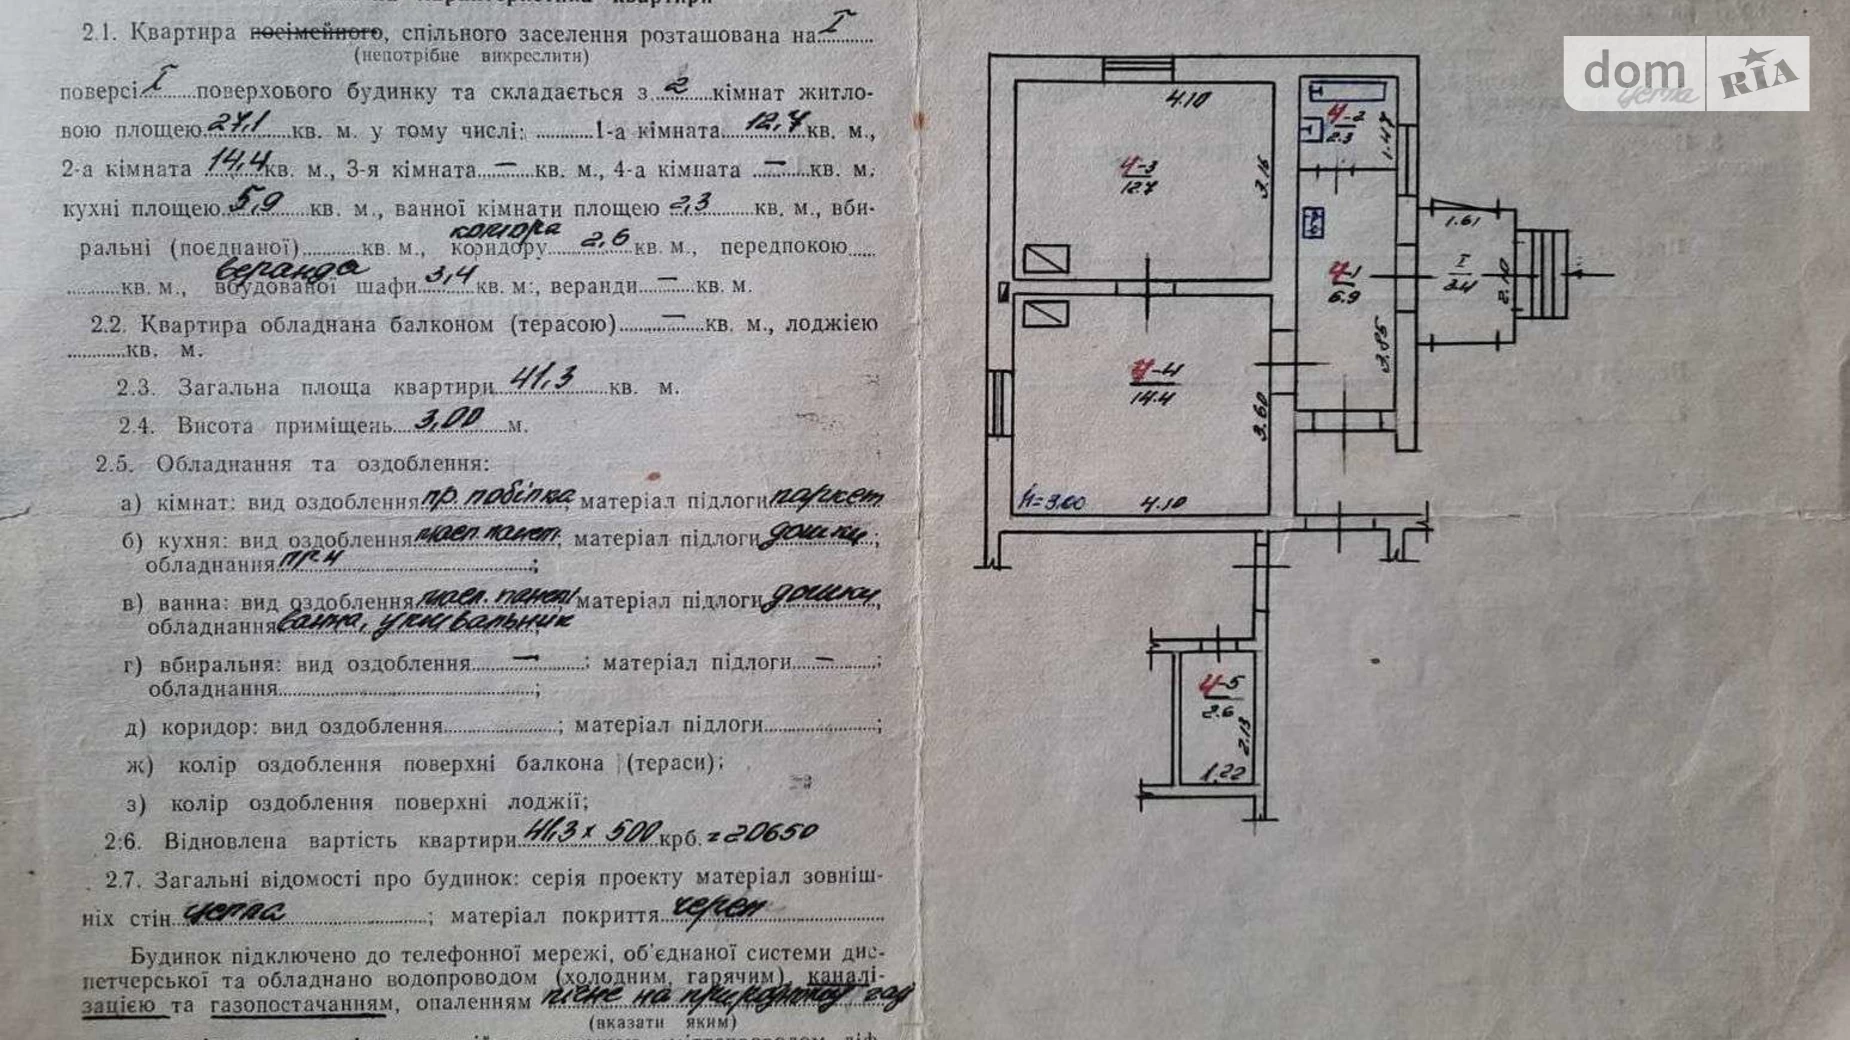 характеристика квартири
2.1. Квартира посімейного, спільного заселення розташована на I
(непотрібне викреслити)
поверсі I поверхового будинку та складається з 2 кімнат житло-
вою площею 27,1 кв. м. у тому числі: 1-а кімната 12,7 кв. м.,
2-а кімната 14,4 кв. м., 3-я кімната — кв. м., 4-а кімната — кв. м.
кухні площею 5,9 кв. м., ванної кімнати площею 2,3 кв. м., вби-
комора
ральні (поєднаної) кв. м., коридору 2,6 кв. м., передпокою
веранда
кв. м., вбудованої шафи 3,4 кв. м., веранди — кв. м.
2.2. Квартира обладнана балконом (терасою) — кв. м., лоджією
кв. м.
2.3. Загальна площа квартири 41,3 кв. м.
2.4. Висота приміщень 3,00 м.
2.5. Обладнання та оздоблення:
а) кімнат: вид оздоблення пр. побілка, матеріал підлоги паркет
б) кухня: вид оздоблення масл. панел; матеріал підлоги дошки;
обладнання пг-4;
в) ванна: вид оздоблення масл. панелі матеріал підлоги дошки,
обладнання ванна, умивальник;
г) вбиральня: вид оздоблення —: матеріал підлоги —;
обладнання;
д) коридор: вид оздоблення; матеріал підлоги;
ж) колір оздоблення поверхні балкона (тераси);
з) колір оздоблення поверхні лоджії;
2.6. Відновлена вартість квартири 41,3 х 500 крб. = 20650
2.7. Загальні відомості про будинок: серія проекту матеріал зовніш-
ніх стін цегла; матеріал покриття череп
Будинок підключено до телефонної мережі, об'єднаної системи дис-
петчерської та обладнано водопроводом (холодним, гарячим), каналі-
зацією та газопостачанням, опаленням пічне на природному газі
(вказати яким)
dom RIA
4.10
4-3
12.7
3.16
4-2
2.3
1.47
4-1
6.9
3.85
1.61
I
3.4
2.10
4-4
14.4
3.60
h=3.00
4.10
4-5
2.6
2.13
1.22